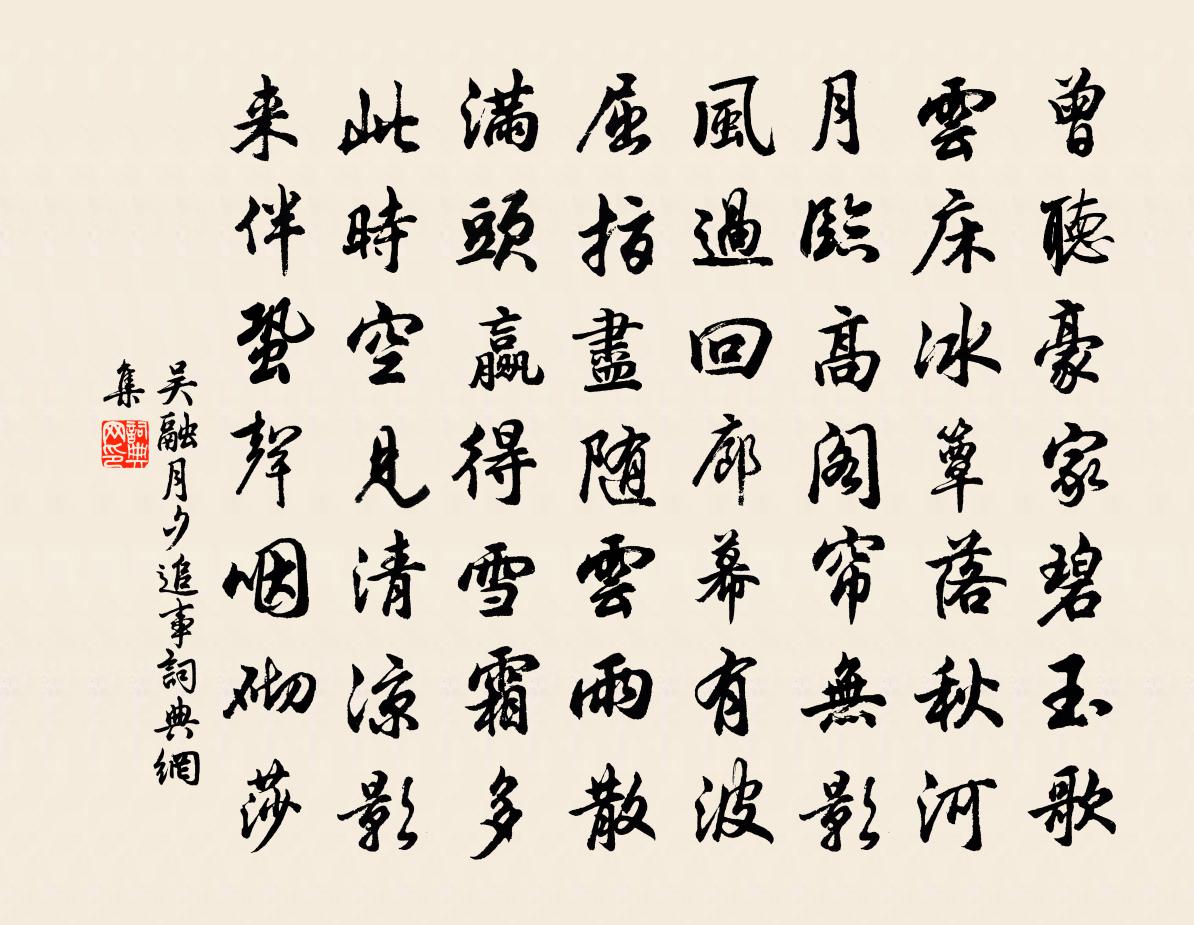 曾聽豪家碧玉歌
雲床冰簟落秋河
月臨高閣帘無影
風過回廊幕有波
屈指盡隨雲雨散
滿頭贏得雪霜多
此時空見清涼影
来伴蛩聲咽砌莎
吳融月夕追事詞典網
集
詞典網印